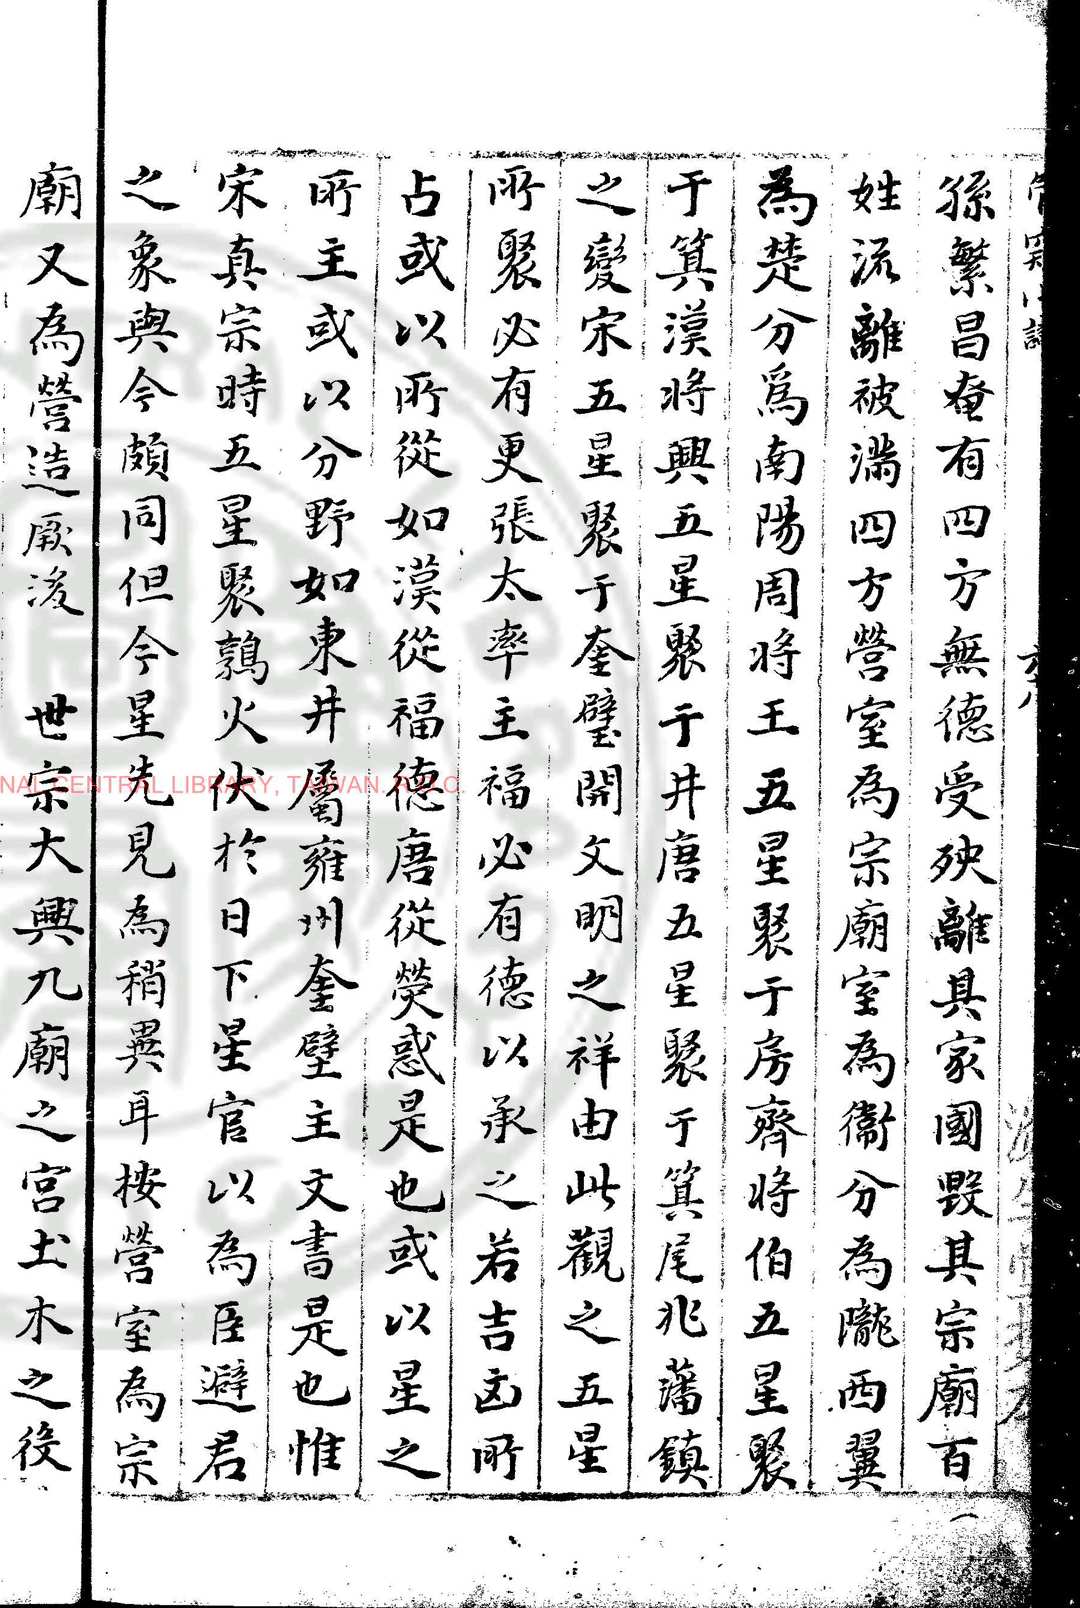 孫繁昌奄有四方無德受殃離其家國毀其宗廟百
姓流離被滿四方營室為宗廟室為衞分為隴西翼
為楚分爲南陽周將王五星聚于房齊將伯五星聚
于箕漢將興五星聚于井唐五星聚于箕尾兆藩鎮
之變宋五星聚于奎璧開文明之祥由此觀之五星
所聚必有更張太率主福必有德以承之若吉凶所
占或以所從如漢從福德唐從熒惑是也或以星之
所主或以分野如東井屬雍州奎壁主文書是也惟
宋真宗時五星聚鶉火伏於日下星官以為臣避君
之象與今頗同但今星先見為稍異耳按營室為宗
廟又為營造厥後　世宗大興九廟之宮土木之役
NAL CENTRAL LIBRARY, TAIWAN. R.O.C.